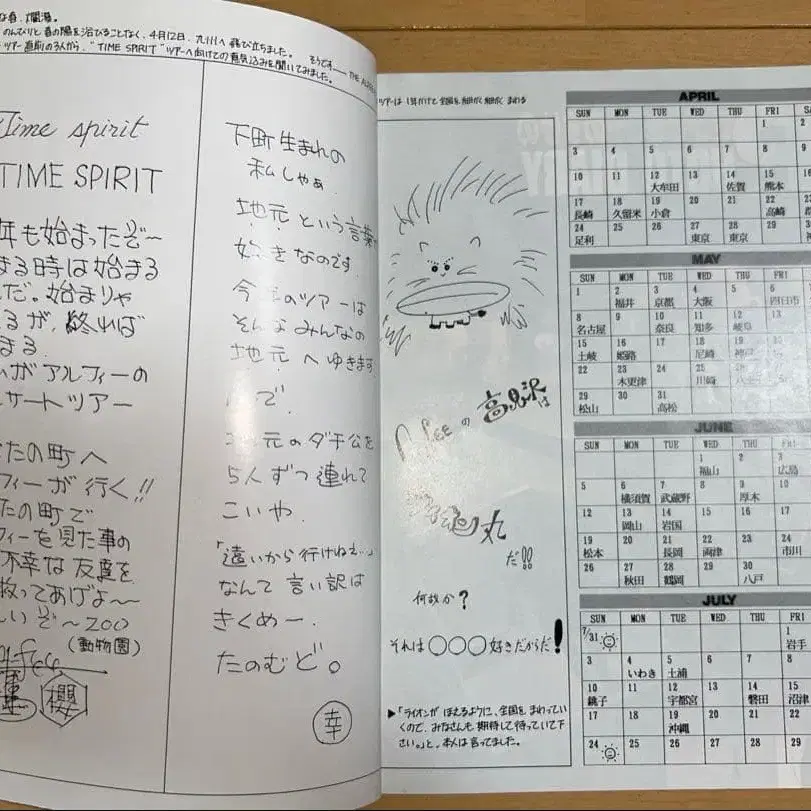 な春、爛漫。
のんびりと春の陽を浴びることなく、4月12日、九州へ飛び立ちました。
ツアー直前の3人から、"TIME SPIRIT"ツアーへ向けての意気込みを聞いてみました。
そうです
THE
Time spirit
TIME SPIRIT
年も始まったぞ〜
まる時は始まる
だ。始まりゃ
るが、終れば
まる
がアルフィーの
サートツアー
たの町へ
フィーが行く!!
たの町で
フィーを見た事の
不幸な友達を
救ってあげよ〜〜
しいぞ〜ZOO
(動物園)
櫻
下町生まれの
私しゃぁ
地元という言葉
好きなのです
今年のツアーは
そんなみんなの
地元へゆきます
で
地元のダチ公を
5人ずつ連れて
こいや
「遠いから行けねェ…」
なんて言い訳は
きくめー
たのむど。
幸
ツアーは
全国を
まわる
の高見沢は
丸
だ!!
何故か?
それは〇〇〇好きだからだ!
▶「ライオンがほえるように、全国をまわってい
くので、みなさんも期待して待っていて下
さい。」と、本人は言ってました。
APRIL
SUN MON TUE WED THU FRI SA
1 2
3 4 5 6 7 8 9
10 11 12 13 14 15 16
大牟田 佐賀 熊本
17 18 19 20 21 22 23
長崎 久留米 小倉 高崎
24 25 26 27 28 29 30
足利 東京 東京
MAY
SUN MON TUE WED THU FRI
1 2 3 4 5 6
福井 京都 大阪 四日市
8 9 10 11 12 13
名古屋 奈良 知多 岐阜
15 16 17 18 19 20
土岐 姫路 尼崎 神戸
22 23 24 25 26
木更津 川崎
29 30 31
松山 高松
JUNE
SUN MON TUE WED THU FRI
1 2 3
福山 広島
5 6 7 8 9 10
横須賀 武蔵野 厚木
12 13 14 15 16 17
岡山 岩国
19 20 21 22 23 24
松本 長岡 両津 市川
26 27 28 29 30
秋田 鶴岡 八戸
JULY
SUN MON TUE WED THU FRI
7/31 1
岩手
3 4 5 6 7 8
いわき 土浦
10 11 12 13 14 15
銚子 宇都宮 磐田 沼津
17 18 19 20 21 22
沖縄
24 25 26 27 28 29